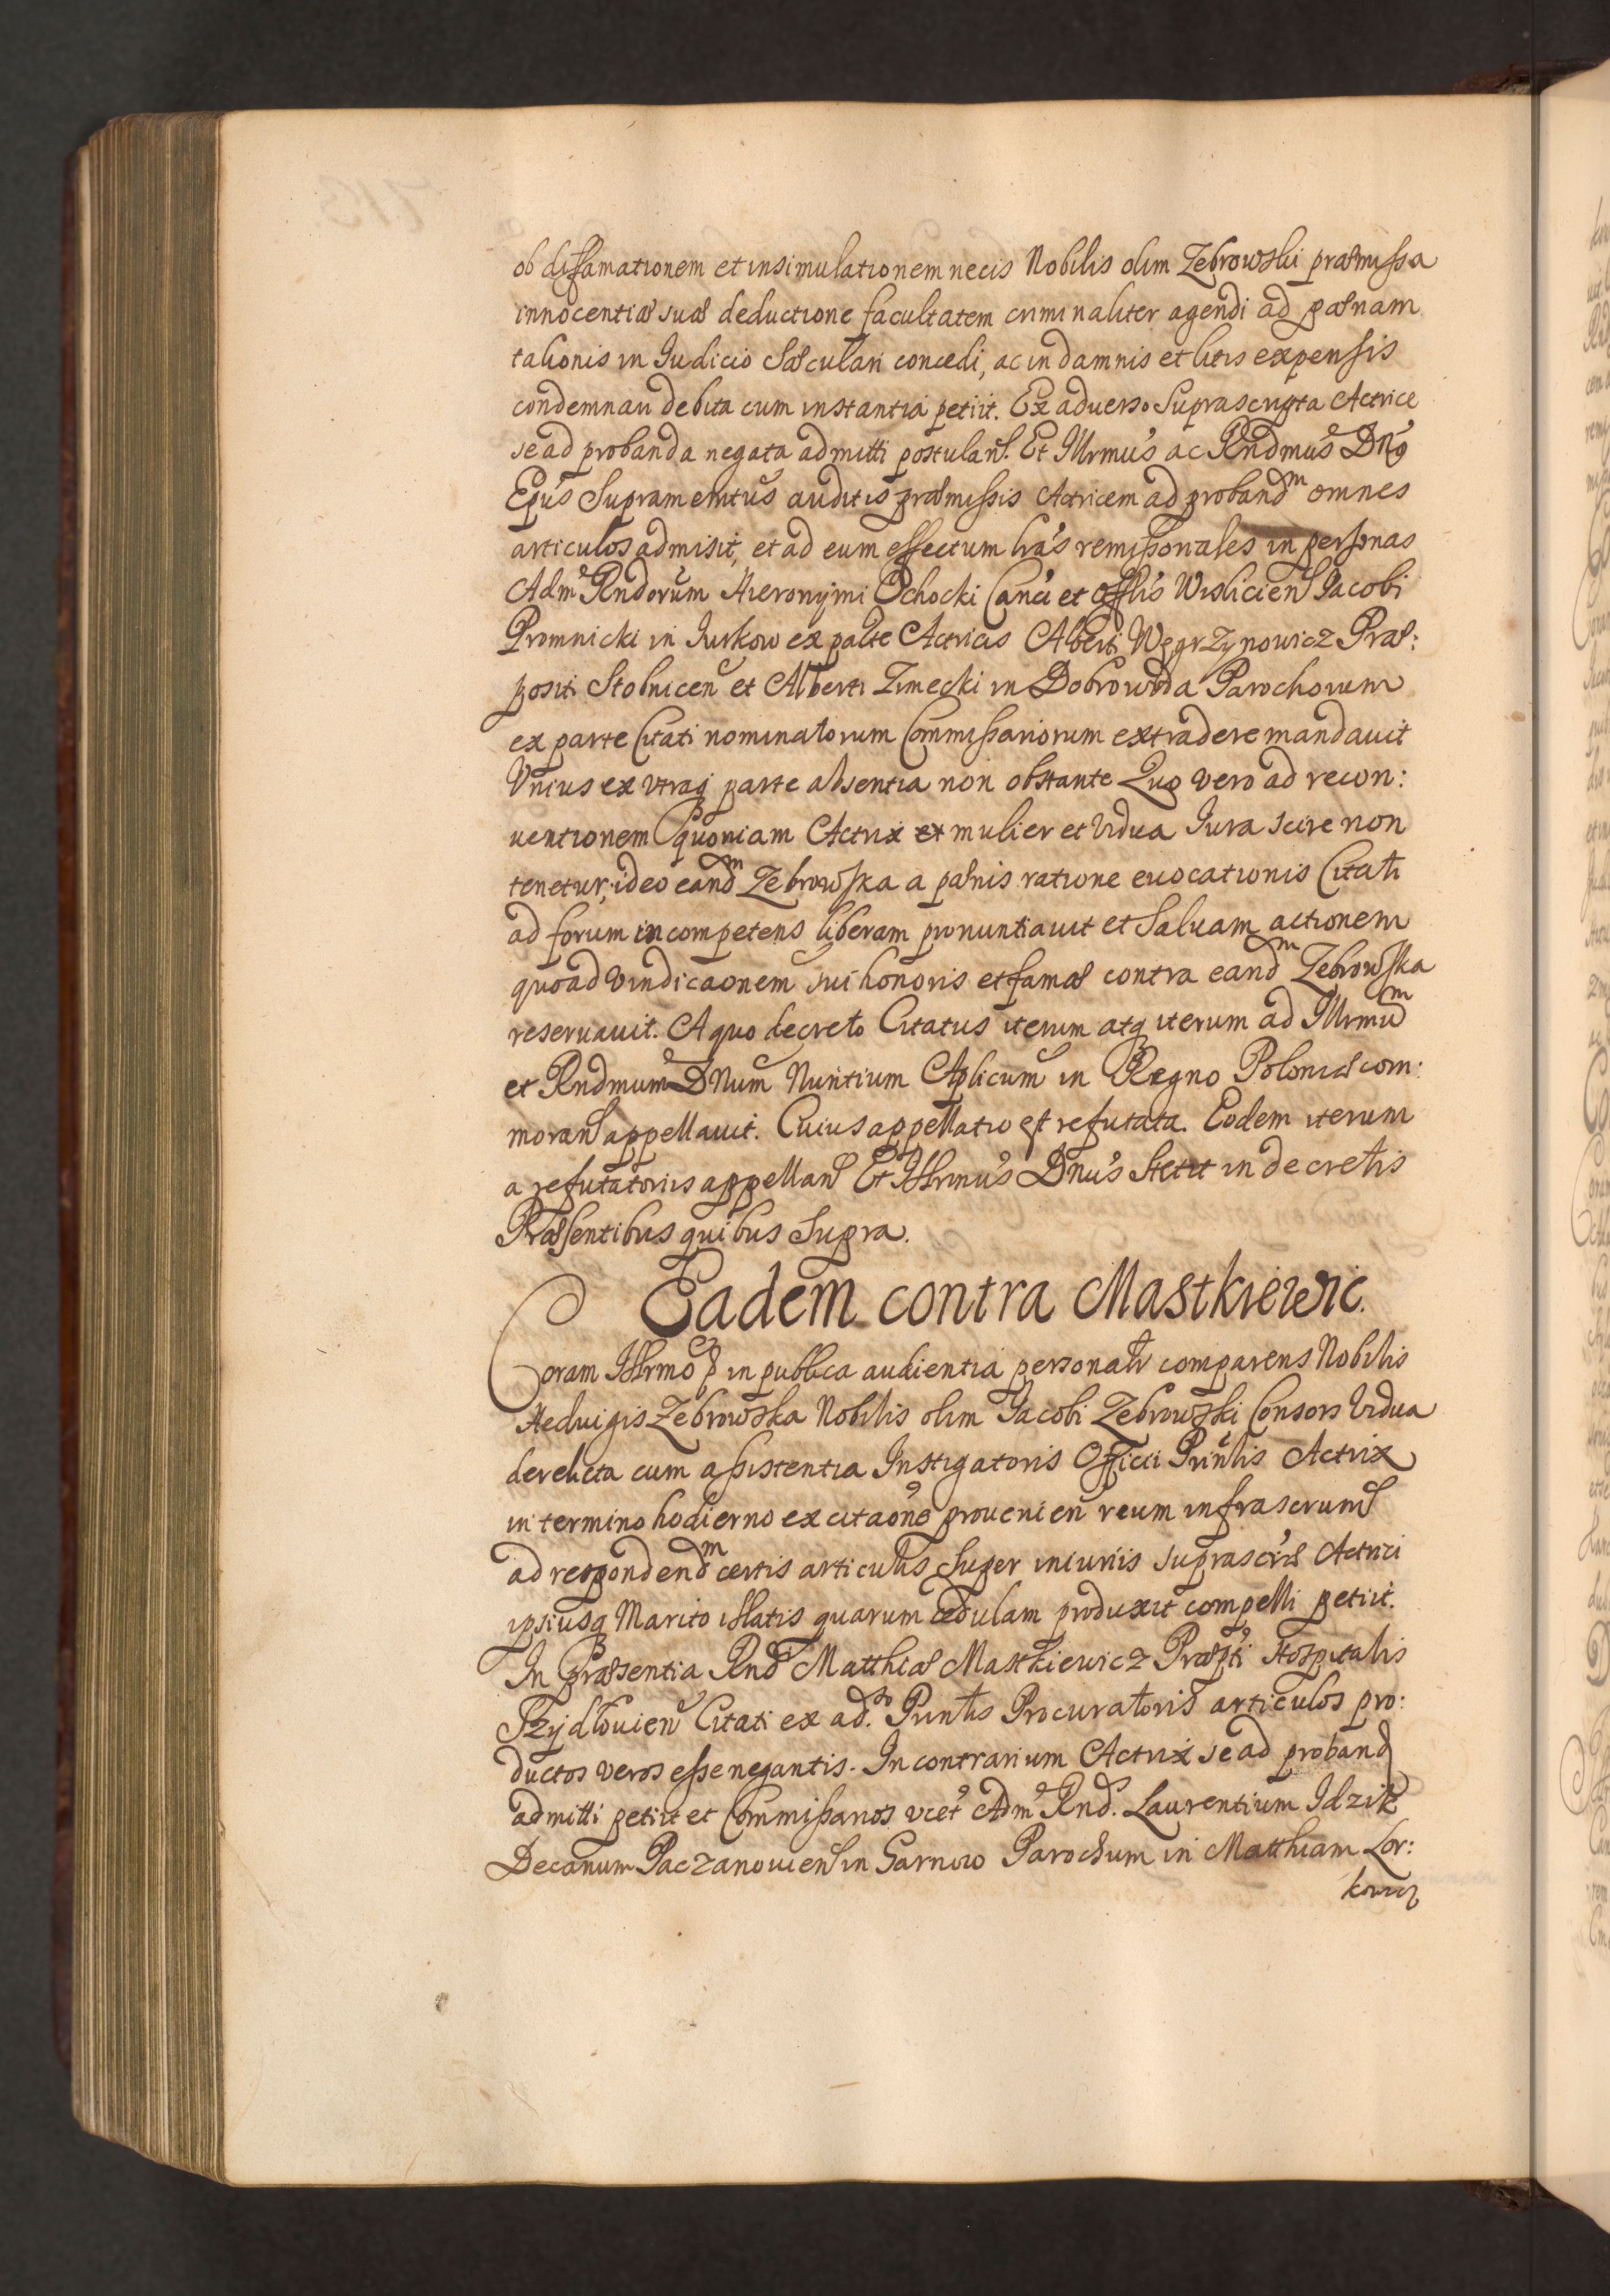 ob diffamationem et insimulationem necis Nobilis olim Zebrowski præmissa
innocentiæ suæ deductione facultatem criminaliter agendi ad pœnam
talionis in Iudicio Sæculari concedi, ac in damnis et litis expensis
condemnari debita cum instantia petiit. Ex adverso Suprascripta Actrice
se ad probanda negata admitti postulan. Et Illrmus ac Rndmus Dnus
Epus Supramemtus auditis præmissis Actricem ad proband^m omnes
articulos admisit, et ad eum effectum lras remissoriales in personas
Adm Rndorum Hieronymi Ochocki Canci et Offlis Wislicien Iacobi
Promnicki in Iurkow ex parte Actricis Alberti Węgrzynowicz Præ:
positi Stobnicen et Alberti Zimecki in Dobrowoda Parochorum
ex parte Citati nominatorum Commissariorum extradere mandavit
Unius ex utraq parte absentia non obstante Quo vero ad recon:
ventionem quoniam Actrix et mulier et vidua Iura scire non
tenetur, ideo eand^m Zebrowska a pœnis ratione evocationis Citati
ad forum incompetens liberam pronuntiavit et Salvam actionem
quoad vindicaonem sui honoris et famæ contra eand^m Zebrowska
reservavit. A quo decreto Citatus iterum atq iterum ad Illrmu^m
et Rndmum DNum Nuntium Aplicum in Regno Poloniæ com:
moran appellavit. Cuius appellatio est refutata. Eodem iterum
a refutatoriis appellan Et Illrmus Dnus stetit in decretis
Præsentibus quibus Supra.
Eadem contra Mastkiewic.
Coram Illrmo in publica audientia personalr comparens Nobilis
Hedvigis Zebrowska Nobilis olim Iacobi Zebrowski Consors Vidua
derelicta cum assistentia Instigatoris Officii Printis Actrix
in termino hodierno ex citaone provenien reum infrascrum
ad respondend^m certis articulis super iniuriis suprascris Actrici
ipsiusq Marito illatis quarum cedulam produxit compelli petiit.
In præsentia Rnd Matthiæ Mastkiewicz Præpti Hospitalis
Szydłovien Citati ex ad^so Printis Procuratoris articulos pro:
ductos veros esse negantis. In contrarium Actrix se ad proband
admitti petiit et Commissarios vcet Adm Rnd. Laurentium Idzik
Decanum Paczanovien in Garnow Parochum in Matthiam Lor:
kowicz